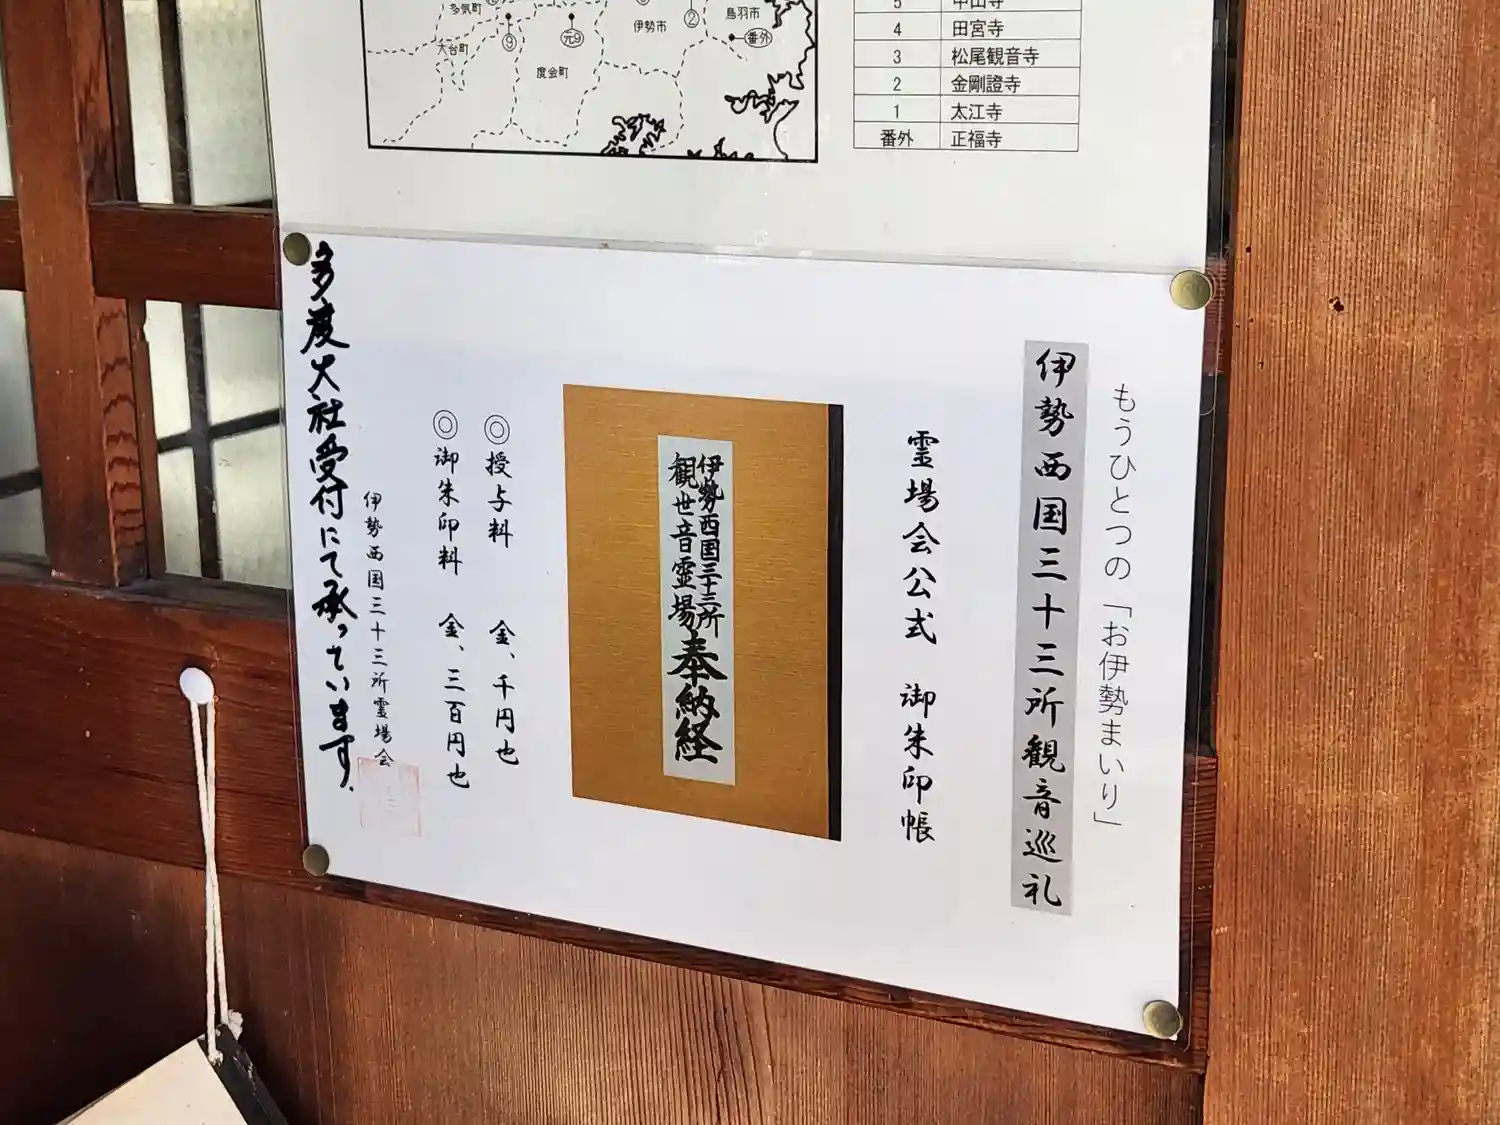 多気町
大台町
度会町
伊勢市
鳥羽市
9
元9
2
番外
5 中山寺
4 田宮寺
3 松尾観音寺
2 金剛證寺
1 太江寺
番外 正福寺
もうひとつの「お伊勢まいり」
伊勢西国三十三所観音巡礼
霊場会公式 御朱印帳
伊勢西国三十三所
観世音霊場
奉納経
◎授与料 金、千円也
◎御朱印料 金、三百円也
伊勢西国三十三所霊場会
多度大社受付にて承っています.